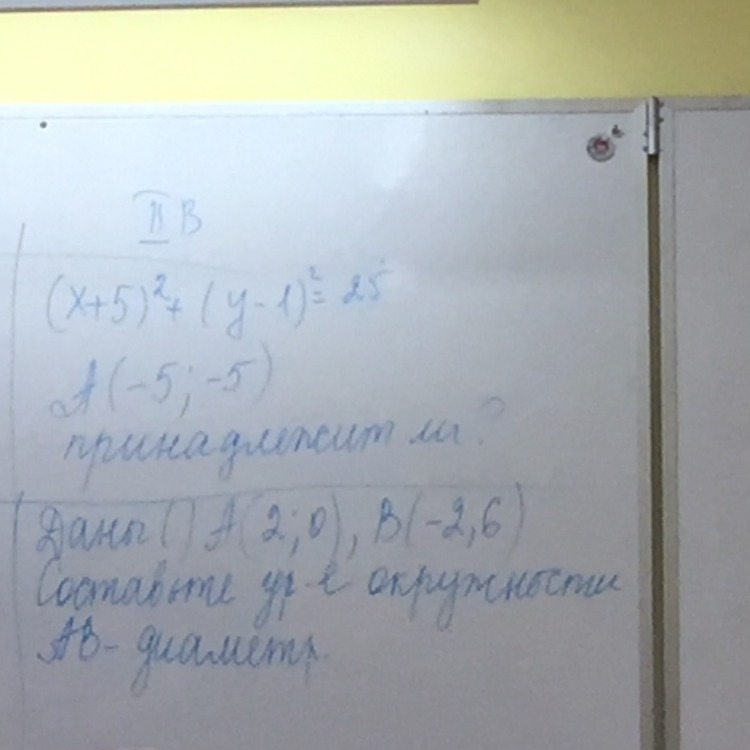 II В
(x+5)²+(y-1)²=25
A(-5;-5)
принадлежит ли?
Даны () A(2;0), B(-2,6)
Составьте ур-е окружности
AB- диаметр.